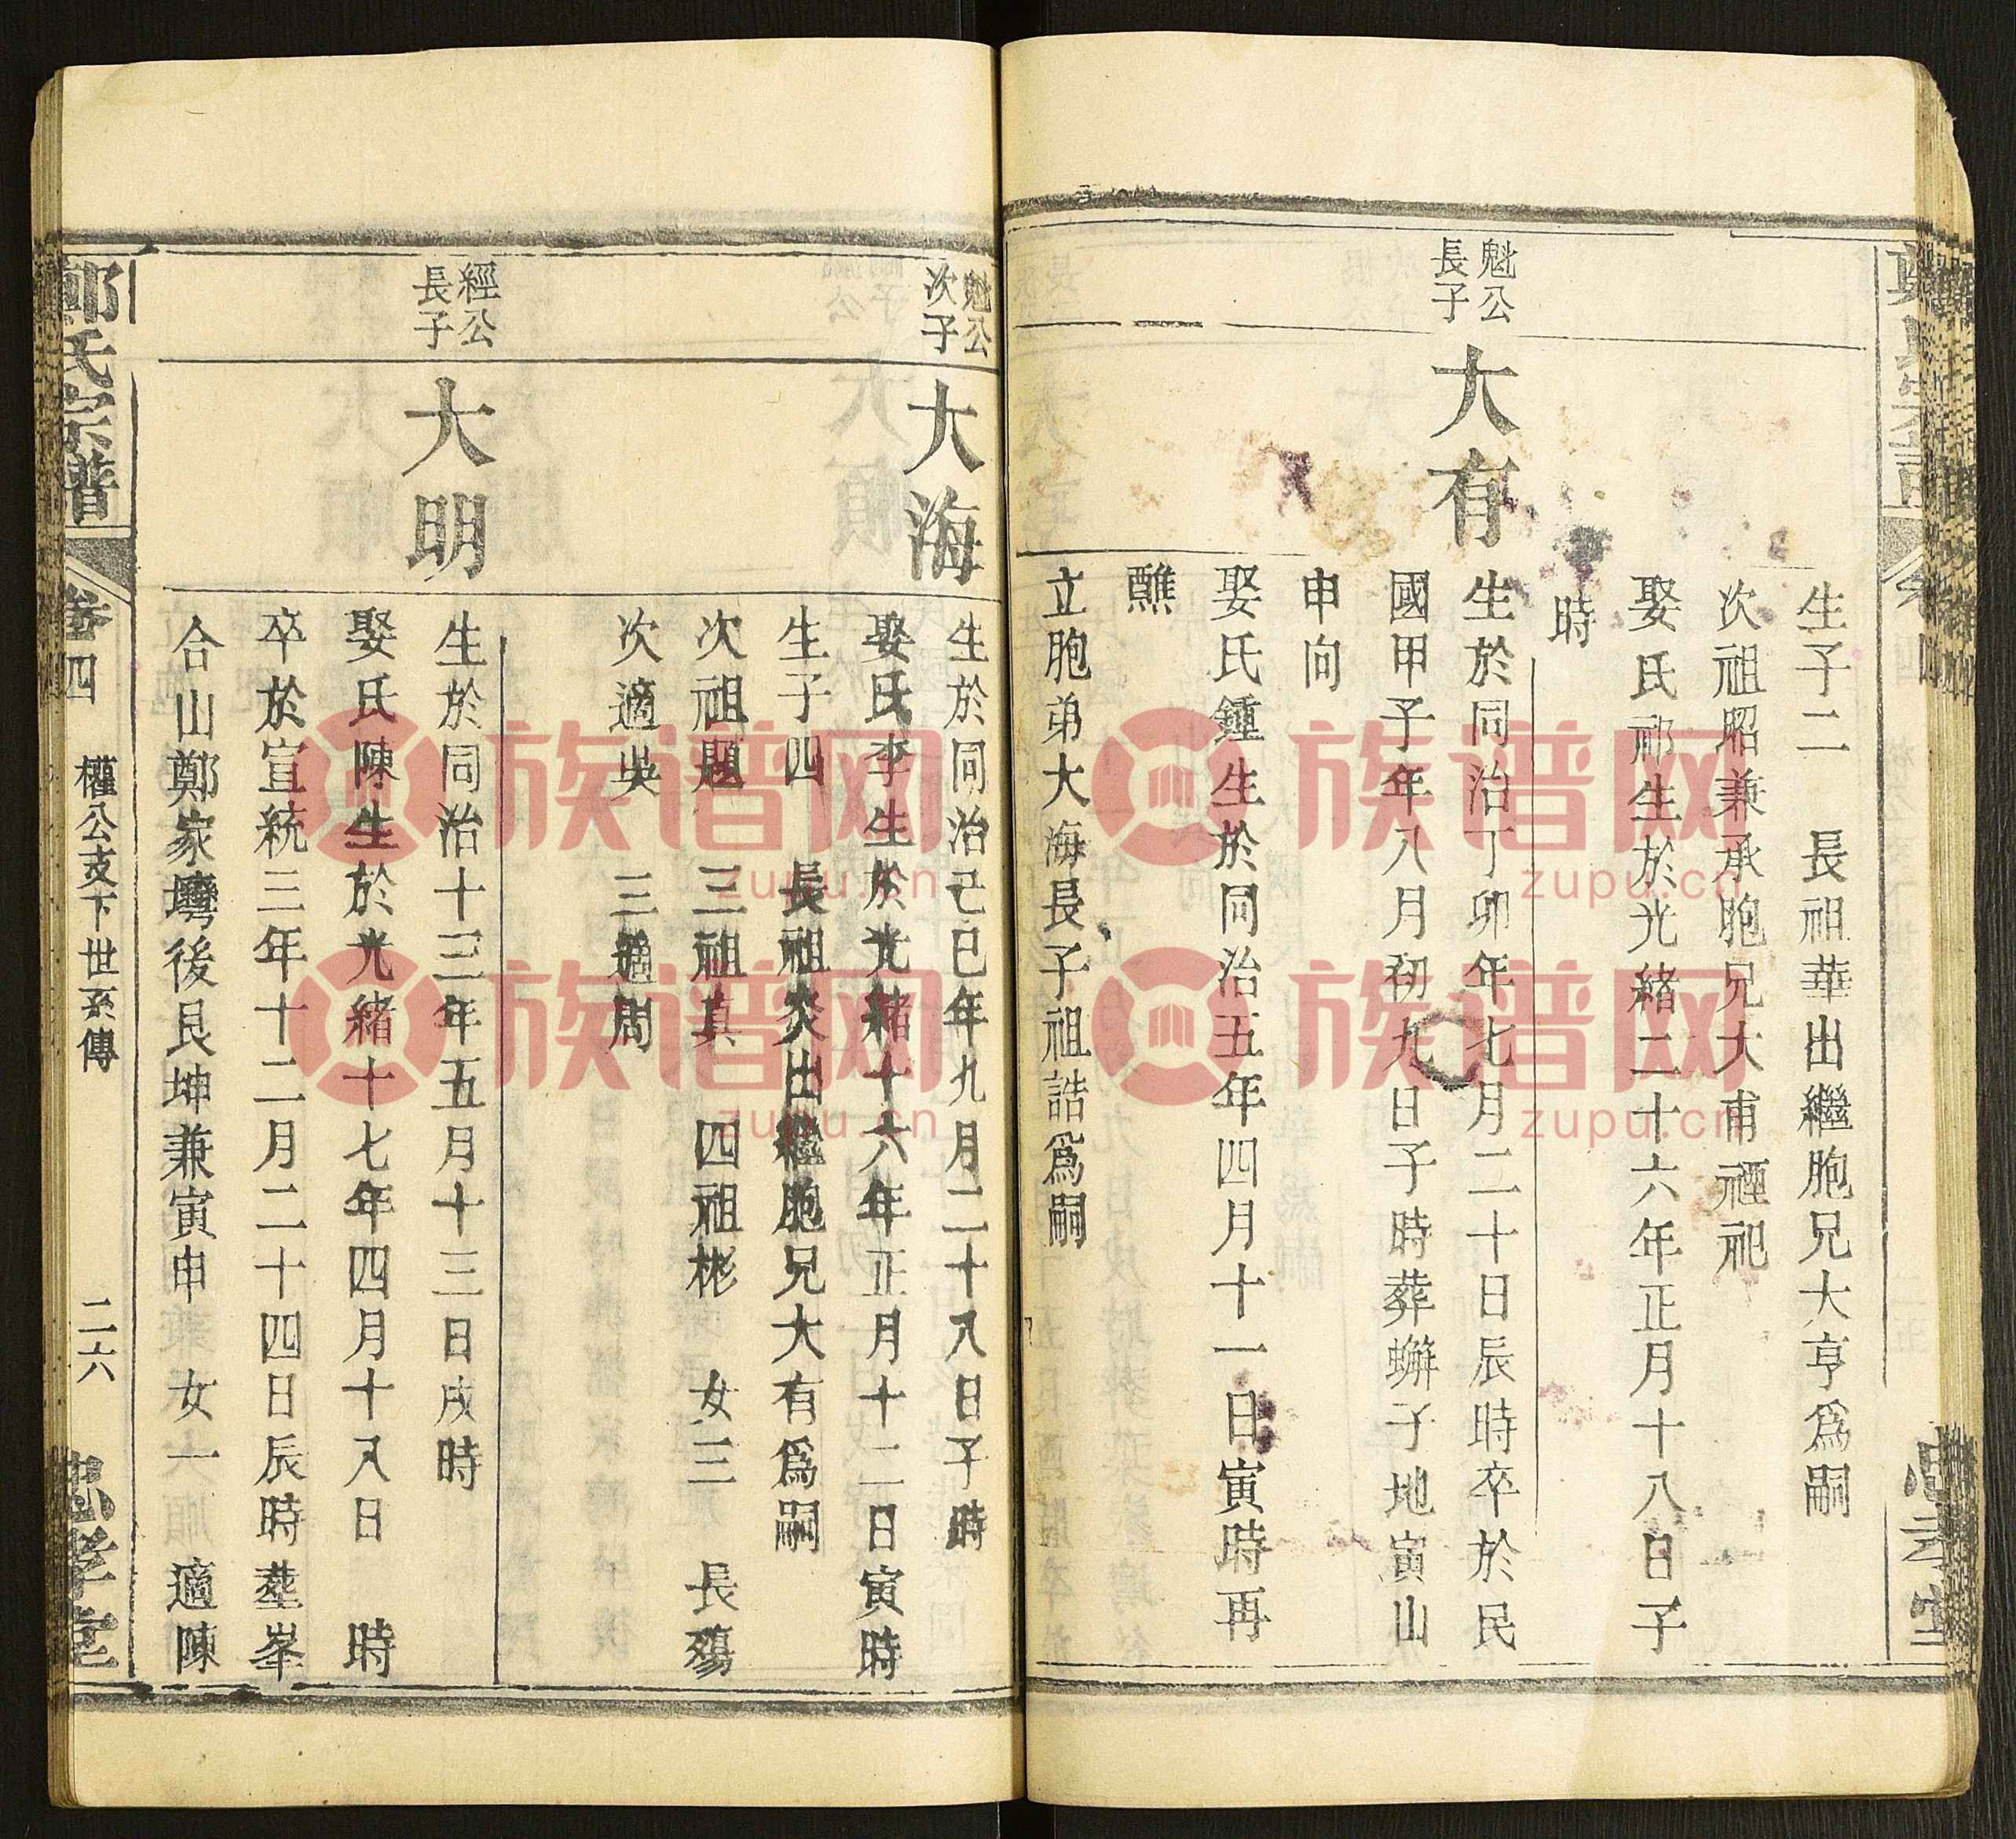 生子二　長祖華出繼胞兄大亨爲嗣
次祖昭兼承胞兄大甫禋祀
娶氏祁生於光緒二十六年正月十八日子
時
魁公
長子
大有
生於同治丁卯年七月二十日辰時卒於民
國甲子年八月初九日子時葬蠏子地寅山
申向
娶氏鍾生於同治五年四月十一日寅時再
醮
立胞弟大海長子祖誥爲嗣
魁公
次子
大海
生於同治己巳年九月二十八日子時
娶氏李生於光緒十六年正月十二日寅時
生子四　長祖奕出繼胞兄大有爲嗣
次祖題　三祖真　四祖彬　女三　長殤
次適吳　三適周
經公
長子
大明
生於同治十三年五月十三日戌時
娶氏陳生於光緒十七年四月十八日　時
卒於宣統三年十二月二十四日辰時塟峯
合山鄭家壪後艮坤兼寅申　女一　適陳
鄭氏宗譜
卷四
權公支下世系傳
二六
忠孝堂
族谱网
zupu.cn
族谱网
zupu.cn
族谱网
zupu.cn
族谱网
zupu.cn